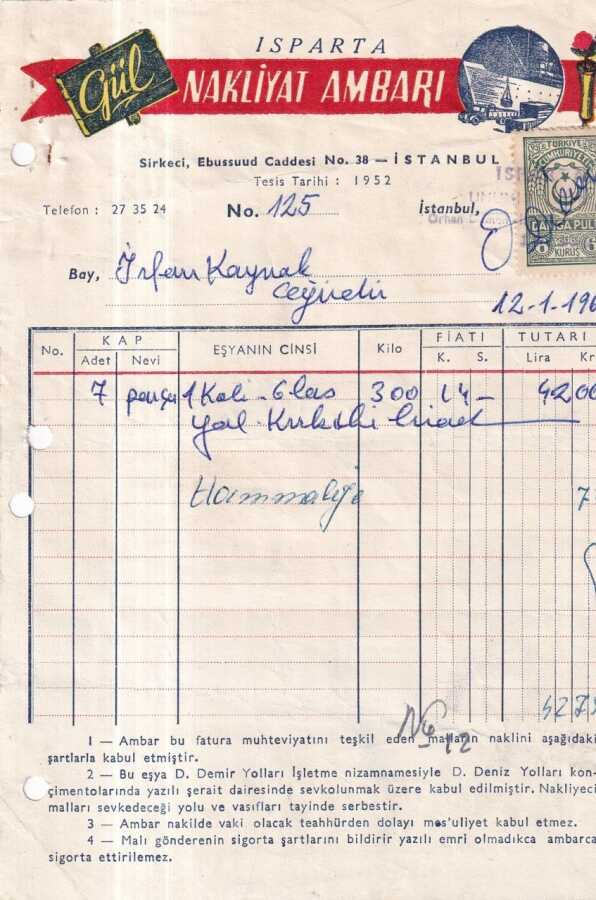 ISPARTA
Gül
NAKLİYAT AMBARI
Sirkeci, Ebussuud Caddesi No. 38 — İSTANBUL
Tesis Tarihi : 1952
TÜRKİYE
CUMHURİYETİ
DAMGA PULU
6 KURUŞ 6
Telefon : 27 35 24 No. 125 İstanbul,
Bay, İrfan Kaynak
12-1-196
No. KAP EŞYANIN CİNSİ Kilo FİATI TUTARI
Adet Nevi K. S. Lira Kr
7 parça 1 Koli - 6 las 300 14 - 4200
Hammaliye 7
427
No 12
1 — Ambar bu fatura muhteviyatını teşkil eden malların naklini aşağıdaki
şartlarla kabul etmiştir.
2 — Bu eşya D. Demir Yolları İşletme nizamnamesiyle D. Deniz Yolları kon-
çimentolarında yazılı şerait dairesinde sevkolunmak üzere kabul edilmiştir. Nakliyeci
malları sevkedeceği yolu ve vasıfları tayinde serbestir.
3 — Ambar nakilde vaki olacak teahhürden dolayı mes'uliyet kabul etmez.
4 — Malı gönderenin sigorta şartlarını bildirir yazılı emri olmadıkca ambarca
sigorta ettirilemez.